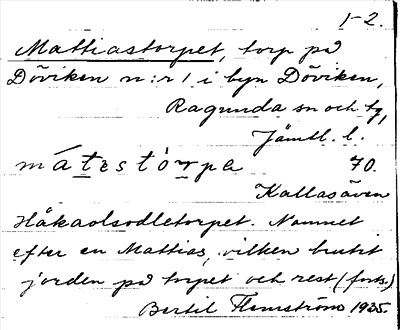 1-2.
Mattiastorpet, torp på
Döviken n:r 1 i byn Döviken,
Ragunda sn och tg,
Jämtl. l.
mátestòrpa 70.
Kallas även
Håkaolsodletorpet. Namnet
efter en Mattias, vilken brutit
jorden på torpet och rest (forts.)
Bertil Flemström 1935.